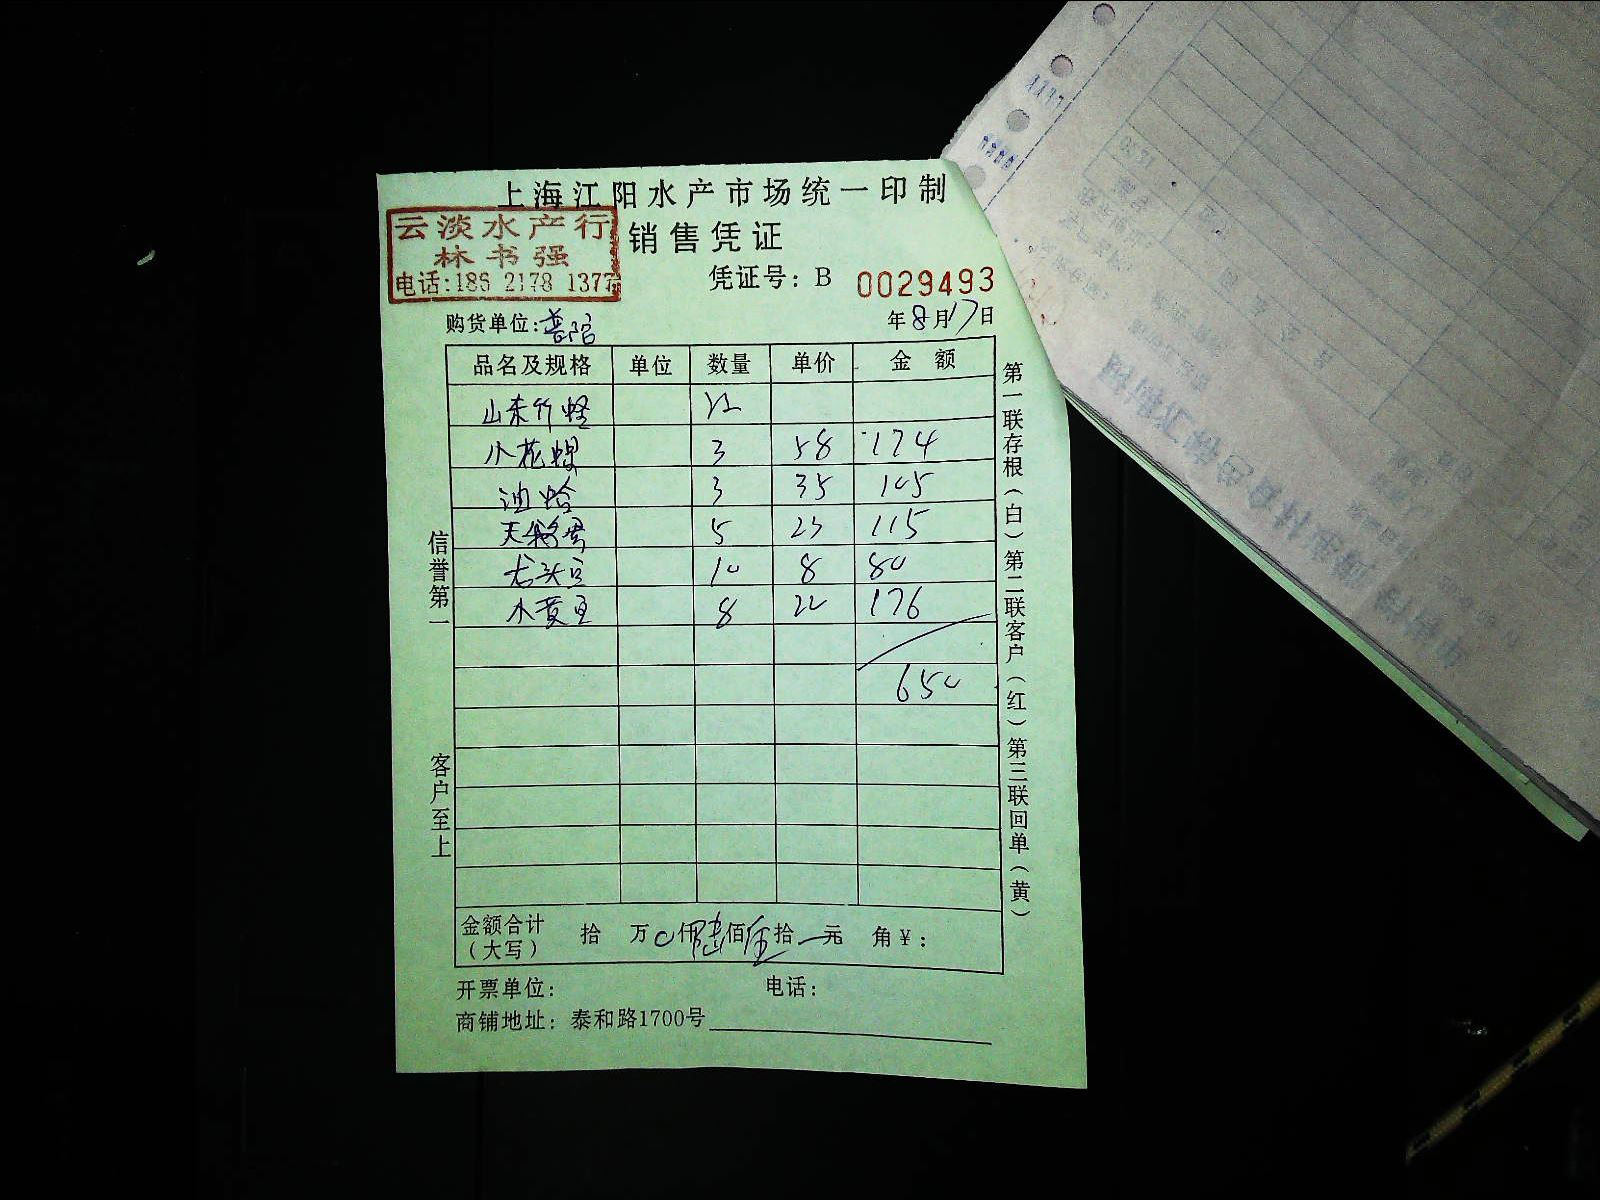 上海江阳水产市场统一印制
云淡水产行
林书强
电话:186 2178 1377
销售凭证
凭证号: B 0029493
购货单位:普陀
年8月17日
品名及规格 单位 数量 单价 金 额
山东竹蛏
小花螺 3 58 174
油蛤 3 35 105
天鹅蛋 5 23 115
龙头豆 10 8 80
水黄豆 8 22 176
650
金额合计
(大写)
拾 万 0仟陆佰伍拾 元 角¥:
开票单位: 电话:
商铺地址: 泰和路1700号
信誉第一
客户至上
第一联存根(白)第二联客户(红)第三联回单(黄)